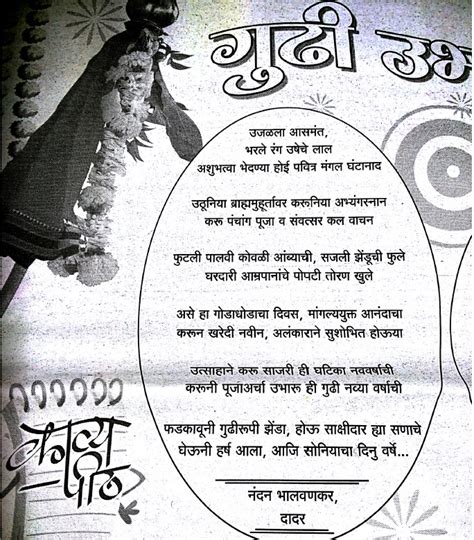 गुढी उभ
उजळला आसमंत,
भरले रंग उषेचे लाल
अशुभत्वा भेदण्या होई पवित्र मंगल घंटानाद
उठूनिया ब्राह्ममुहूर्तावर करूनिया अभ्यंगस्नान
करू पंचांग पूजा व संवत्सर कल वाचन
फुटली पालवी कोवळी आंब्याची, सजली झेंडूची फुले
घरदारी आम्रपानांचे पोपटी तोरण खुले
असे हा गोडाधोडाचा दिवस, मांगल्ययुक्त आनंदाचा
करून खरेदी नवीन, अलंकाराने सुशोभित होऊया
उत्साहाने करू साजरी ही घटिका नववर्षाची
करूनी पूजाअर्चा उभारू ही गुढी नव्या वर्षाची
फडकावूनी गुढीरूपी झेंडा, होऊ साक्षीदार ह्या सणाचे
घेऊनी हर्ष आला, आजि सोनियाचा दिनु वर्षे...
नंदन भालवणकर,
दादर
काव्य
पीठ